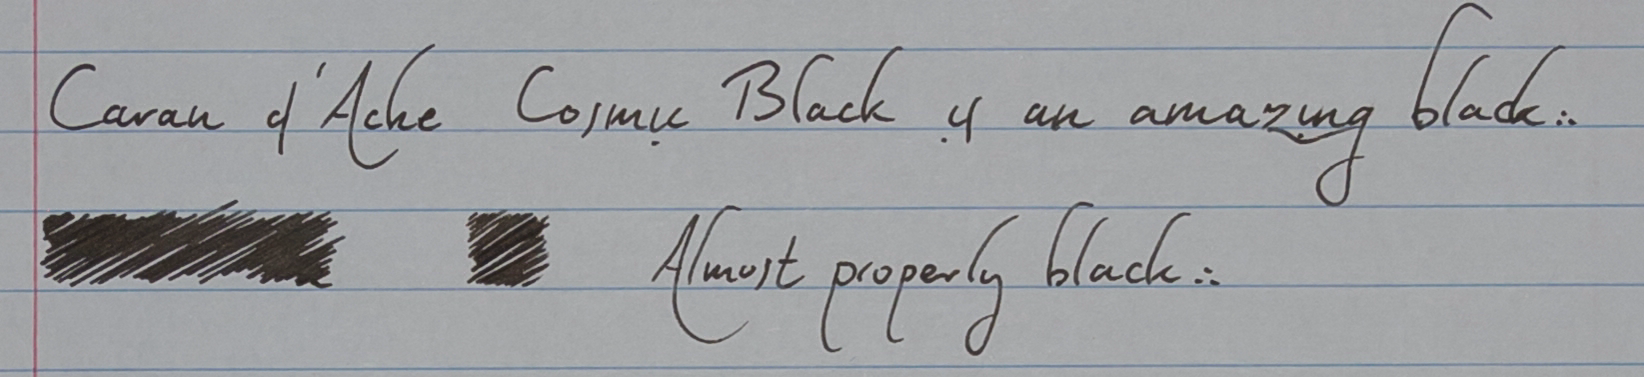 Caran d'Ache Cosmic Black is an amazing black..
Almost properly black..